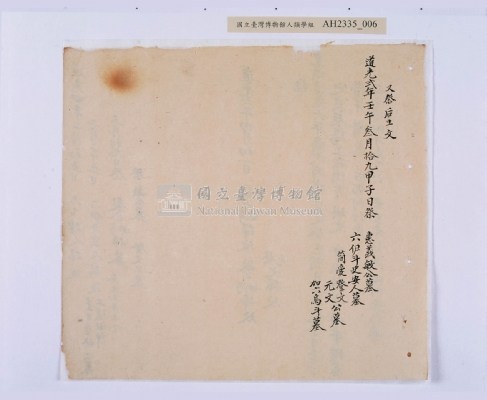 國立臺灣博物館人類學組 AH2335_006
又祭后土文
道光貳年壬午叁月拾九甲子日祭
惠義敏公墓
六伯斗史安人墓
簡愛
文公墓
元文
斗墓
國立臺灣博物館
National Taiwan Museum